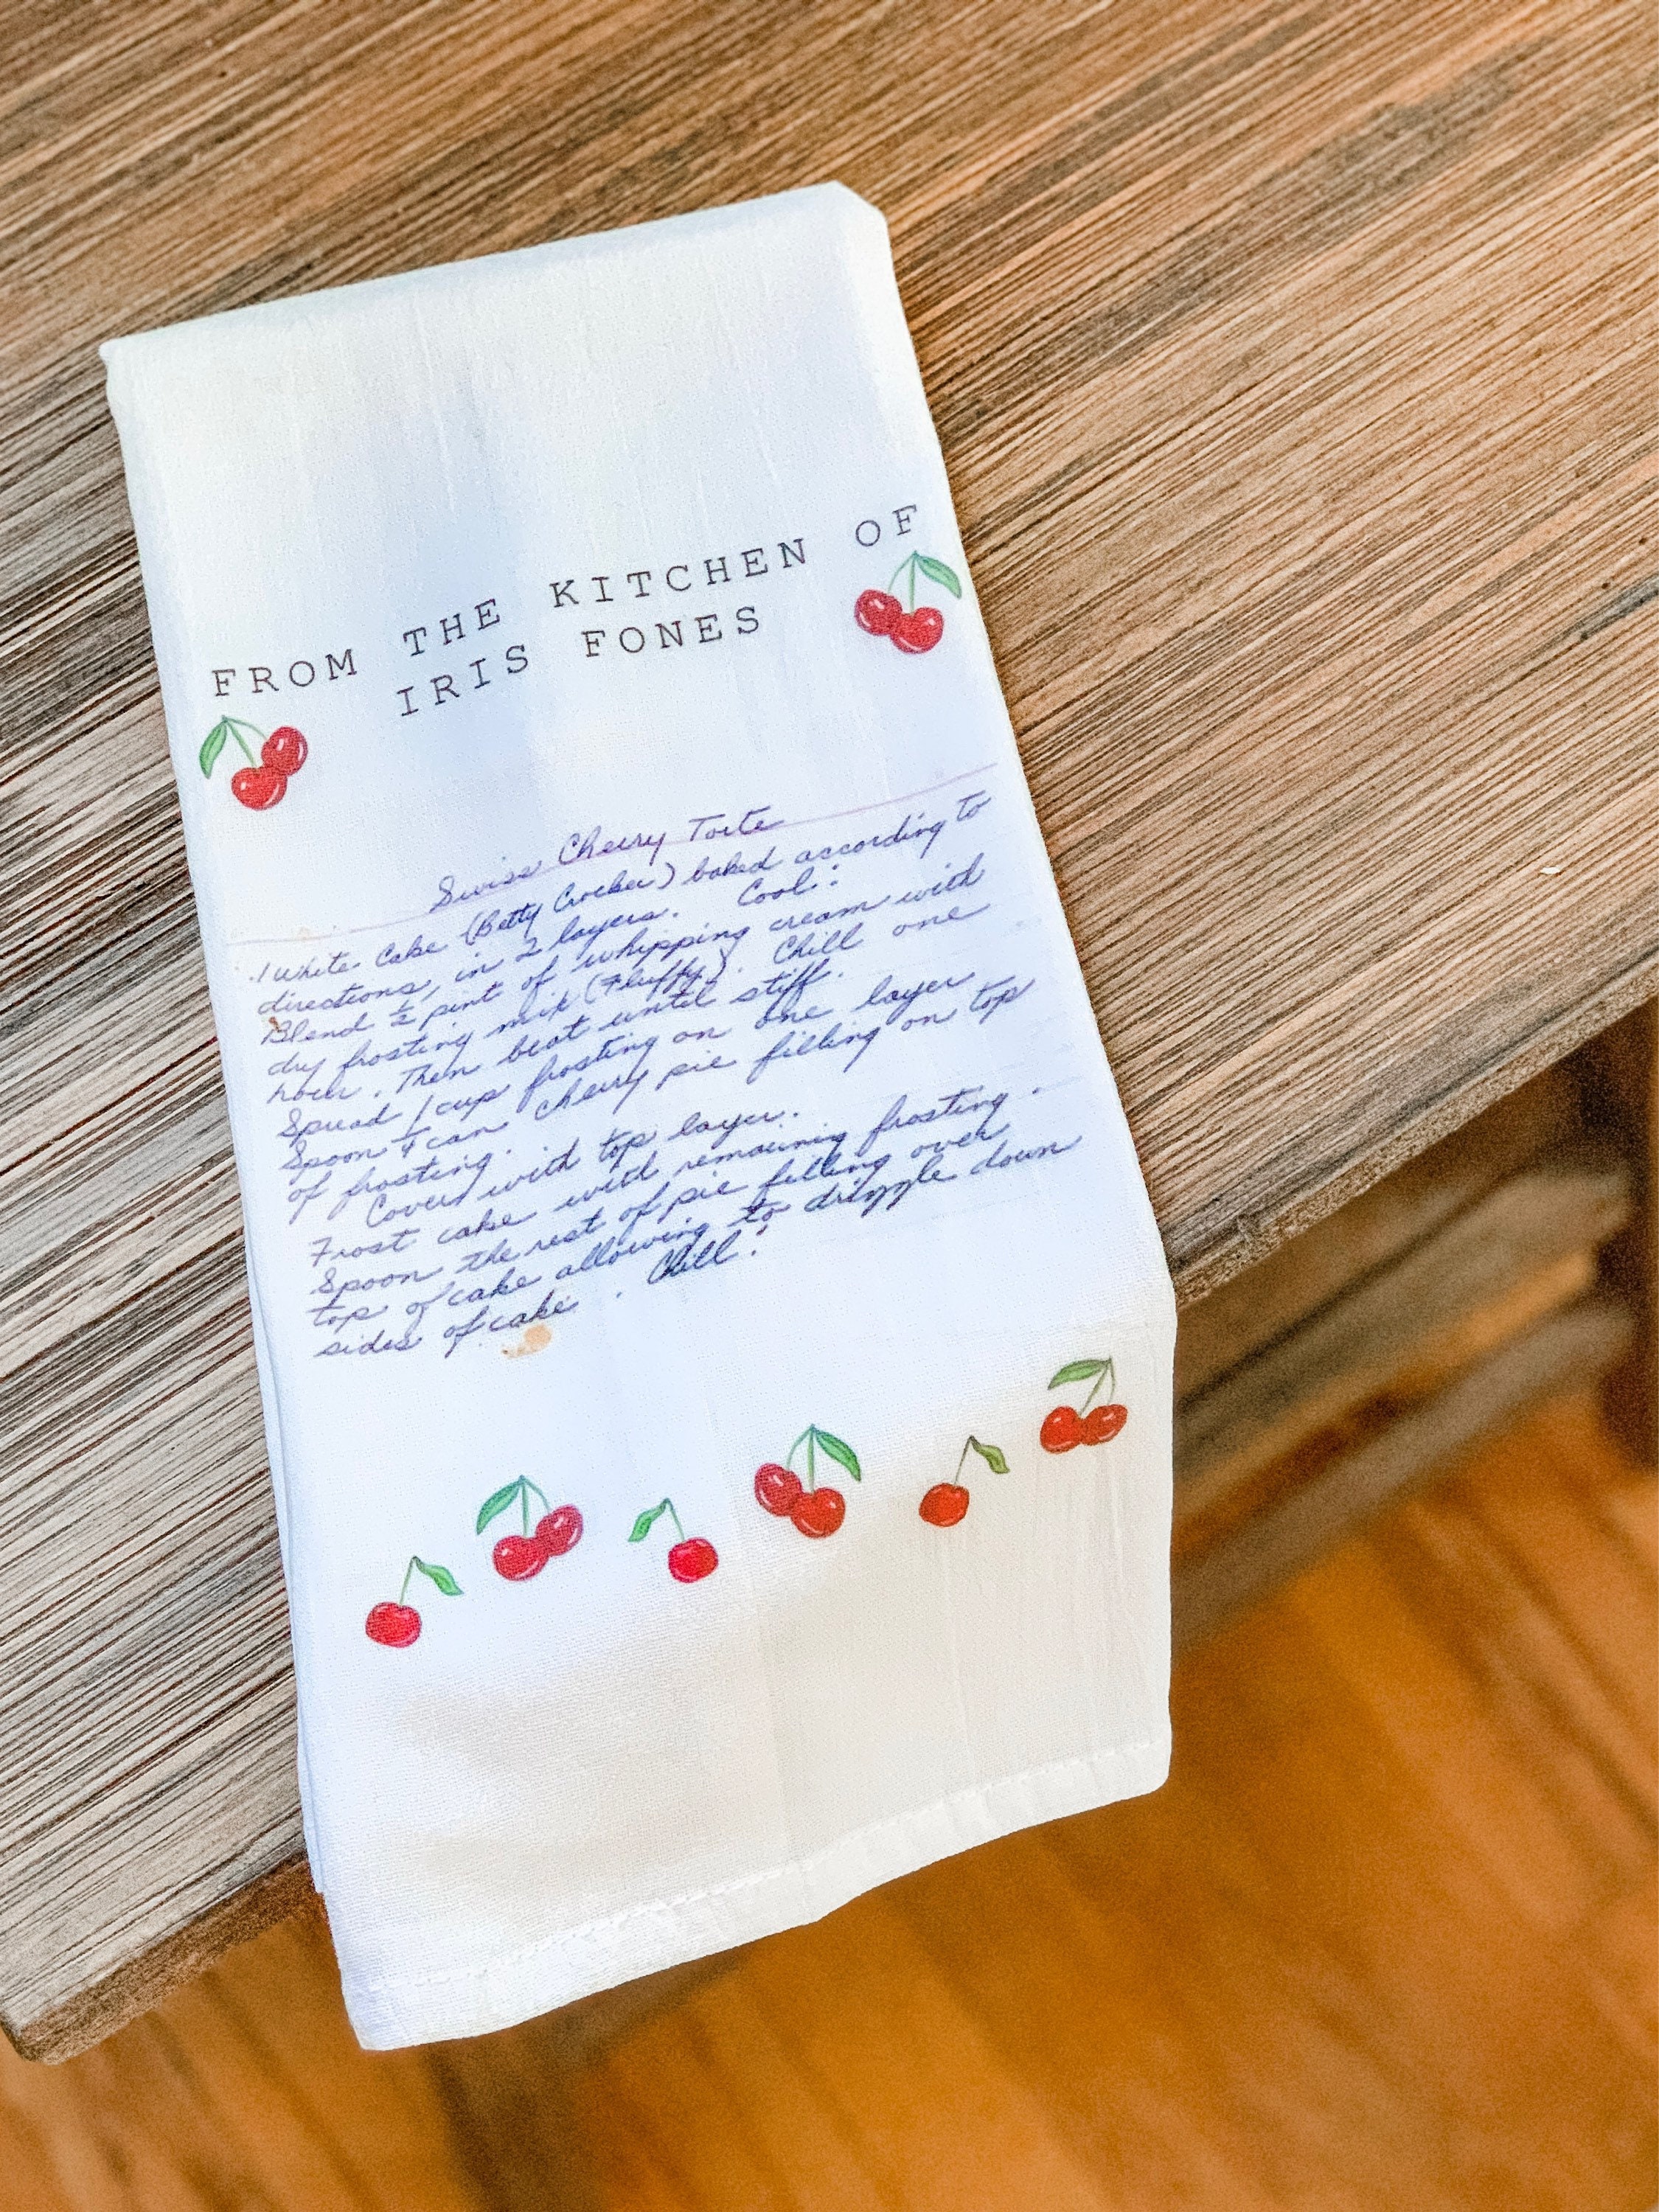 FROM THE KITCHEN OF
IRIS FONES
Swiss Cherry Torte
1 White Cake (Betty Crocker) baked according to
directions, in 2 layers. Cool.
Blend ½ pint of whipping cream with
dry frosting mix (Fluffy). Chill one
hour. Then beat until stiff.
Spread 1 cup frosting on one layer
Spoon can cherry pie filling on top
of frosting.
Cover with top layer.
Frost cake with remaining frosting.
Spoon the rest of pie filling over
top of cake allowing to drizzle down
sides of cake. Chill.